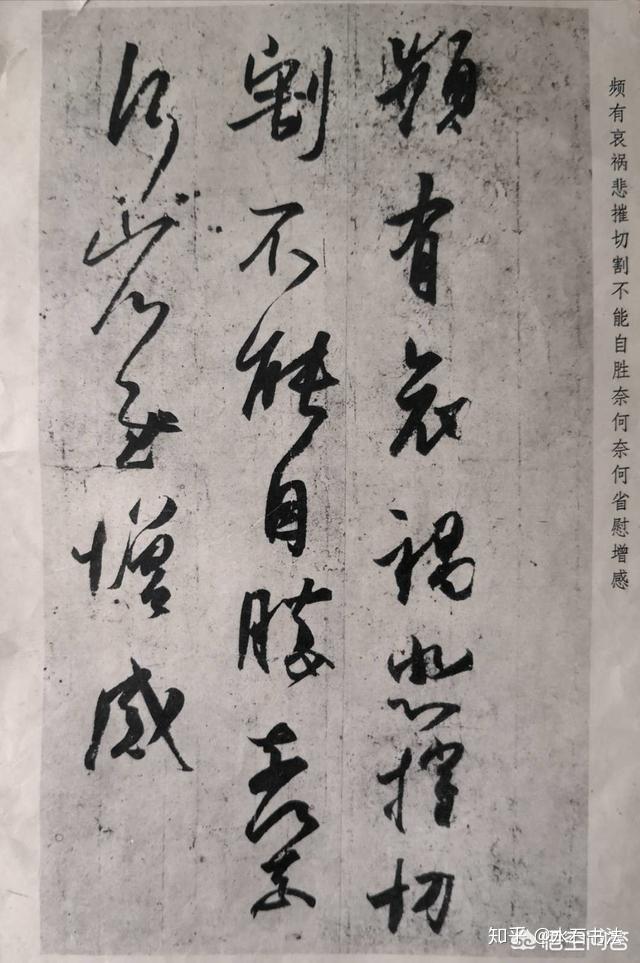 頻有哀禍悲摧切
割不能自勝奈何奈
何省慰增感
频有哀祸悲摧切割不能自胜奈何奈何省慰增感
知乎 @水石书法
悟空问答